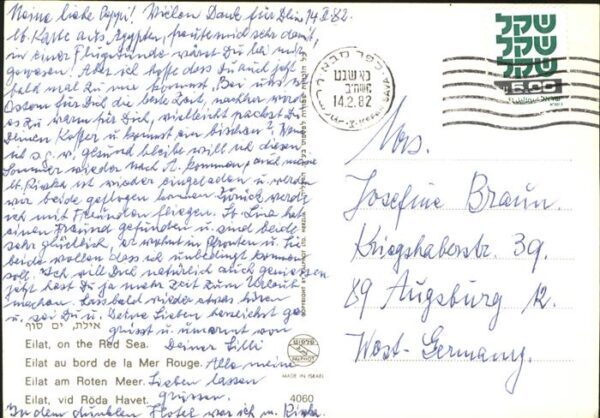 Meine liebe Peppi! Vielen Dank für Dein 14.II.82.
lb. Karte aus Ägypten, freute mich sehr damit,
in einer Flugstunde wärst Du bei mir
gewesen. Aber ich hoffe dass Du auch jetzt
bald mal zu mir kommst. Bei uns ist
Ostern für Dich die beste Zeit, nachher wird
es zu warm für Dich, vielleicht packst Du
Deinen Koffer u. kommst ein bischen? Wenn
ich s. g. w. gesund bleibe will ich diesen
Sommer wieder nach A. kommen, auch meine
lb. Rivka ist wieder eingeladen u. werden
wir beide geflogen kommen. Zurück werde
ich mit Freunden fliegen. lb. Lisa hat
einen Freund gefunden u. sind beide
sehr glücklich, er wohnt in u. Sie
beide wollen dass ich unbedingt kommen
soll. Ich will Dich natürlich auch geniessen
jetzt hast Du ja mehr Zeit zum Urlaub
machen. Lass bald wieder etwas hören
u. sei Du u. Deine Lieben herzlichst ge
grüsst u. umarmt von
Deiner Lilli
Alle meine
Lieben lassen
grüssen.
In dem dunklen Hotel war ich m. Rivka.
אילת, ים סוף
Eilat, on the Red Sea.
Eilat au bord de la Mer Rouge.
Eilat am Roten Meer.
Eilat, vid Röda Havet.
PALPHOT
MADE IN ISRAEL
4060
14.2.82
שקל
שקל
שקל
5.00
Mrs.
Josefine Braun.
Kriegshaberstr. 39.
89 Augsburg 12.
West-Germany.